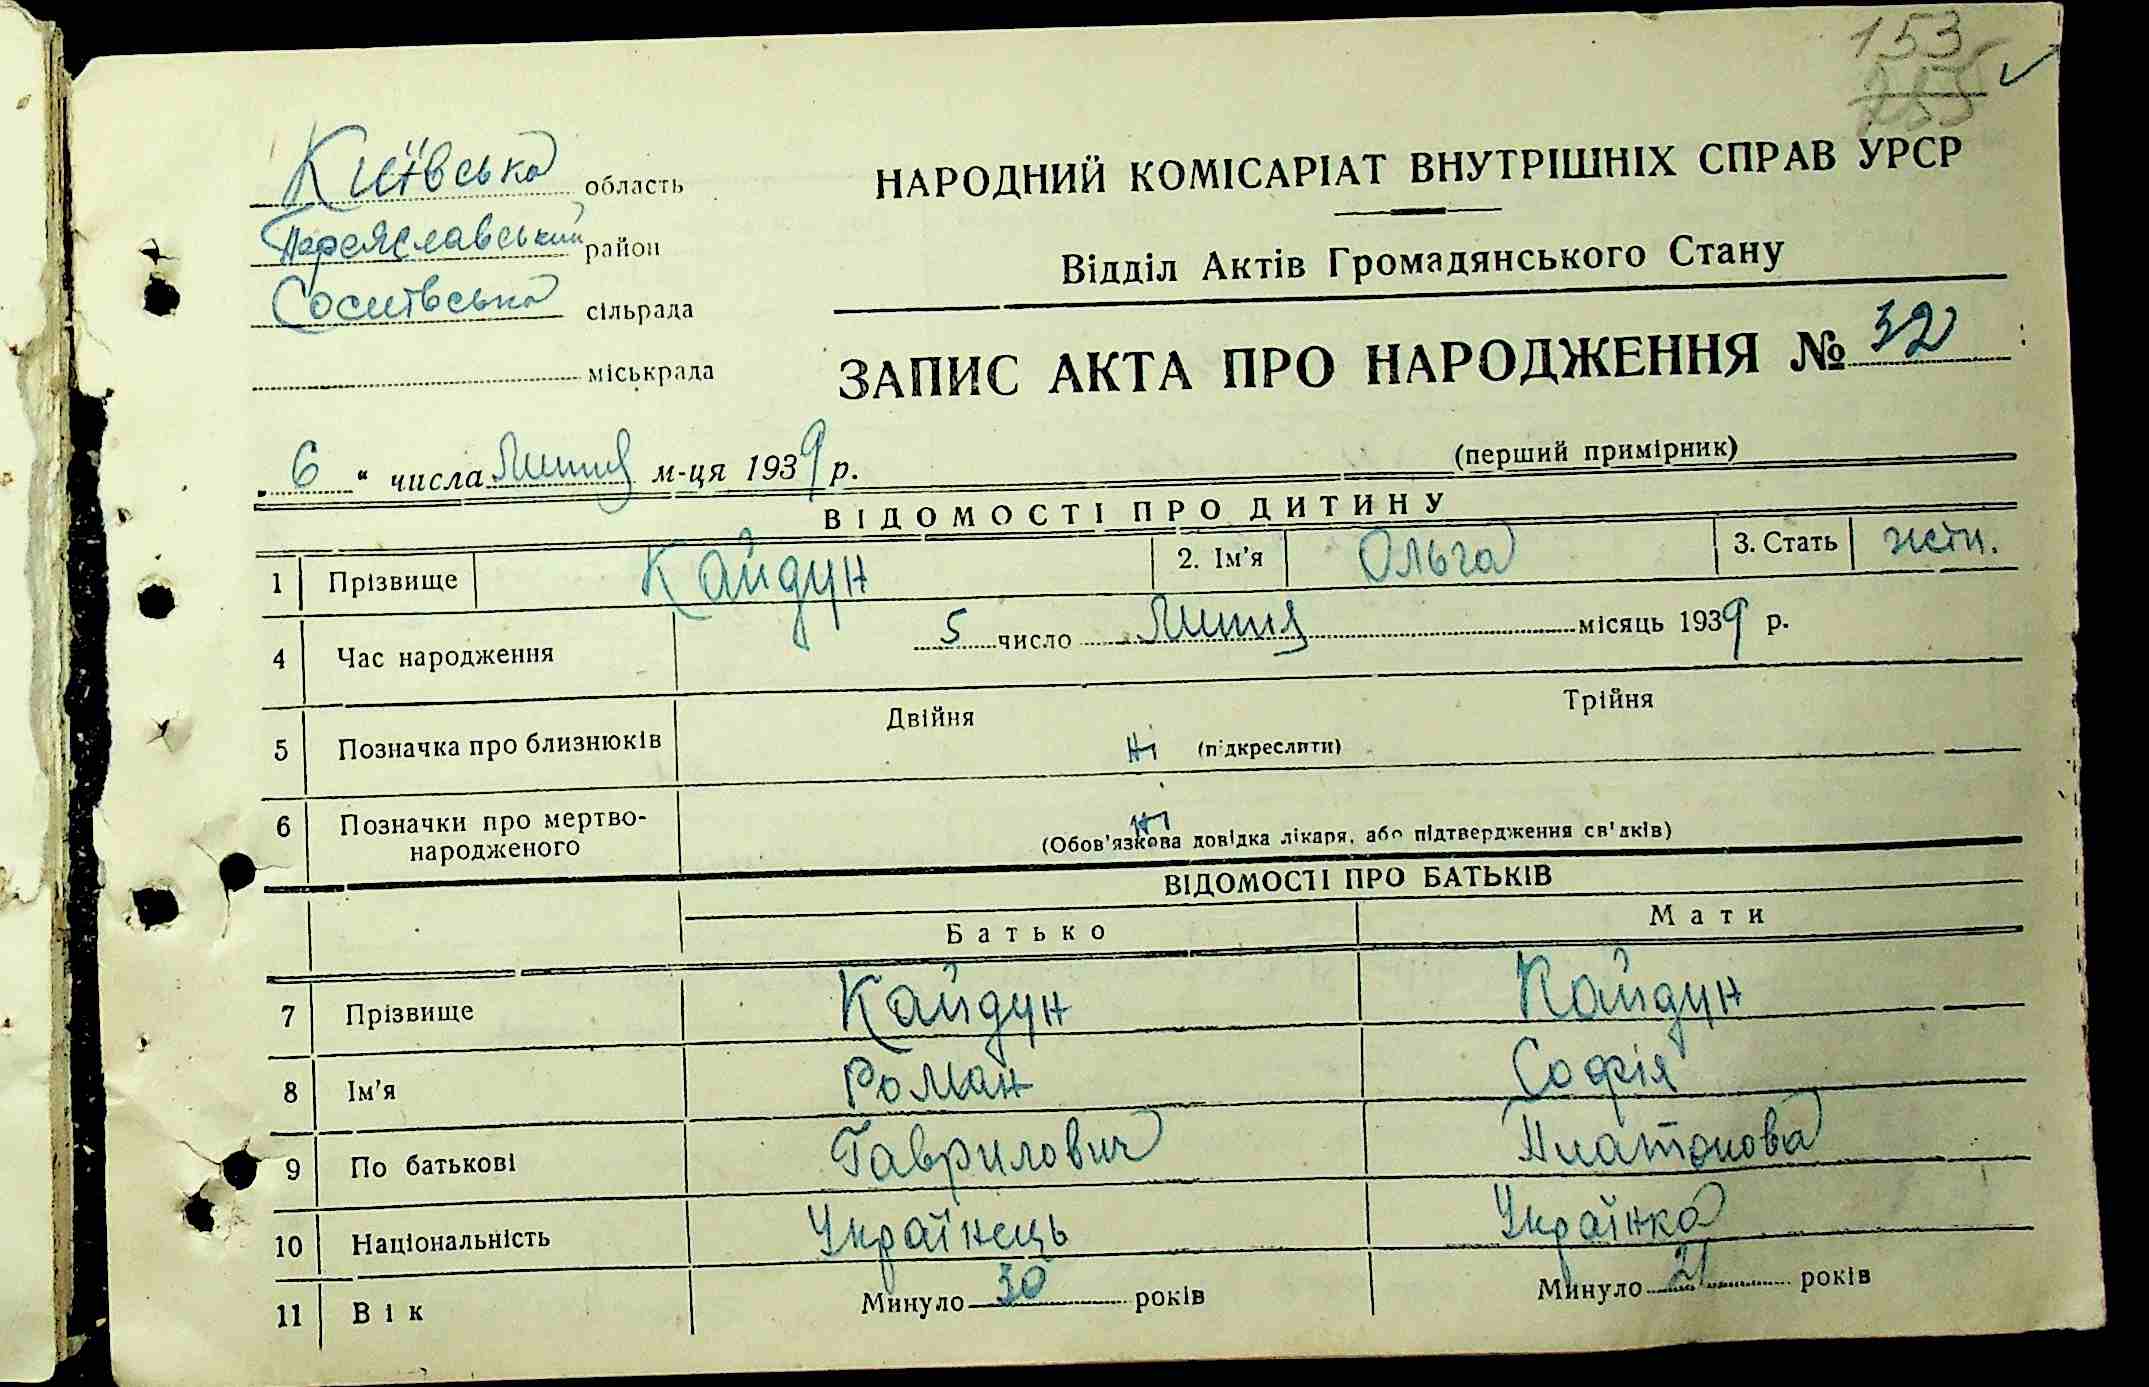 153
255
Київська область
Переяславський район
Соснівська сільрада
міськрада
НАРОДНИЙ КОМІСАРІАТ ВНУТРІШНІХ СПРАВ УРСР
Відділ Актів Громадянського Стану
ЗАПИС АКТА ПРО НАРОДЖЕННЯ № 32
„6“ числа Липня м-ця 1939 р.
(перший примірник)
ВІДОМОСТІ ПРО ДИТИНУ
1 Прізвище Кайдун 2. Ім'я Ольга 3. Стать жін.
4 Час народження 5 число Липня місяць 1939 р.
5 Позначка про близнюків Двійня Трійня
ні (підкреслити)
6 Позначки про мертво-
народженого
ні
(Обов'язкова довідка лікаря, або підтвердження свідків)
ВІДОМОСТІ ПРО БАТЬКІВ
Батько Мати
7 Прізвище Кайдун Кайдун
8 Ім'я Роман Софія
9 По батькові Гаврилович Платонова
10 Національність Українець Українка
11 Вік Минуло 30 років Минуло 21 років